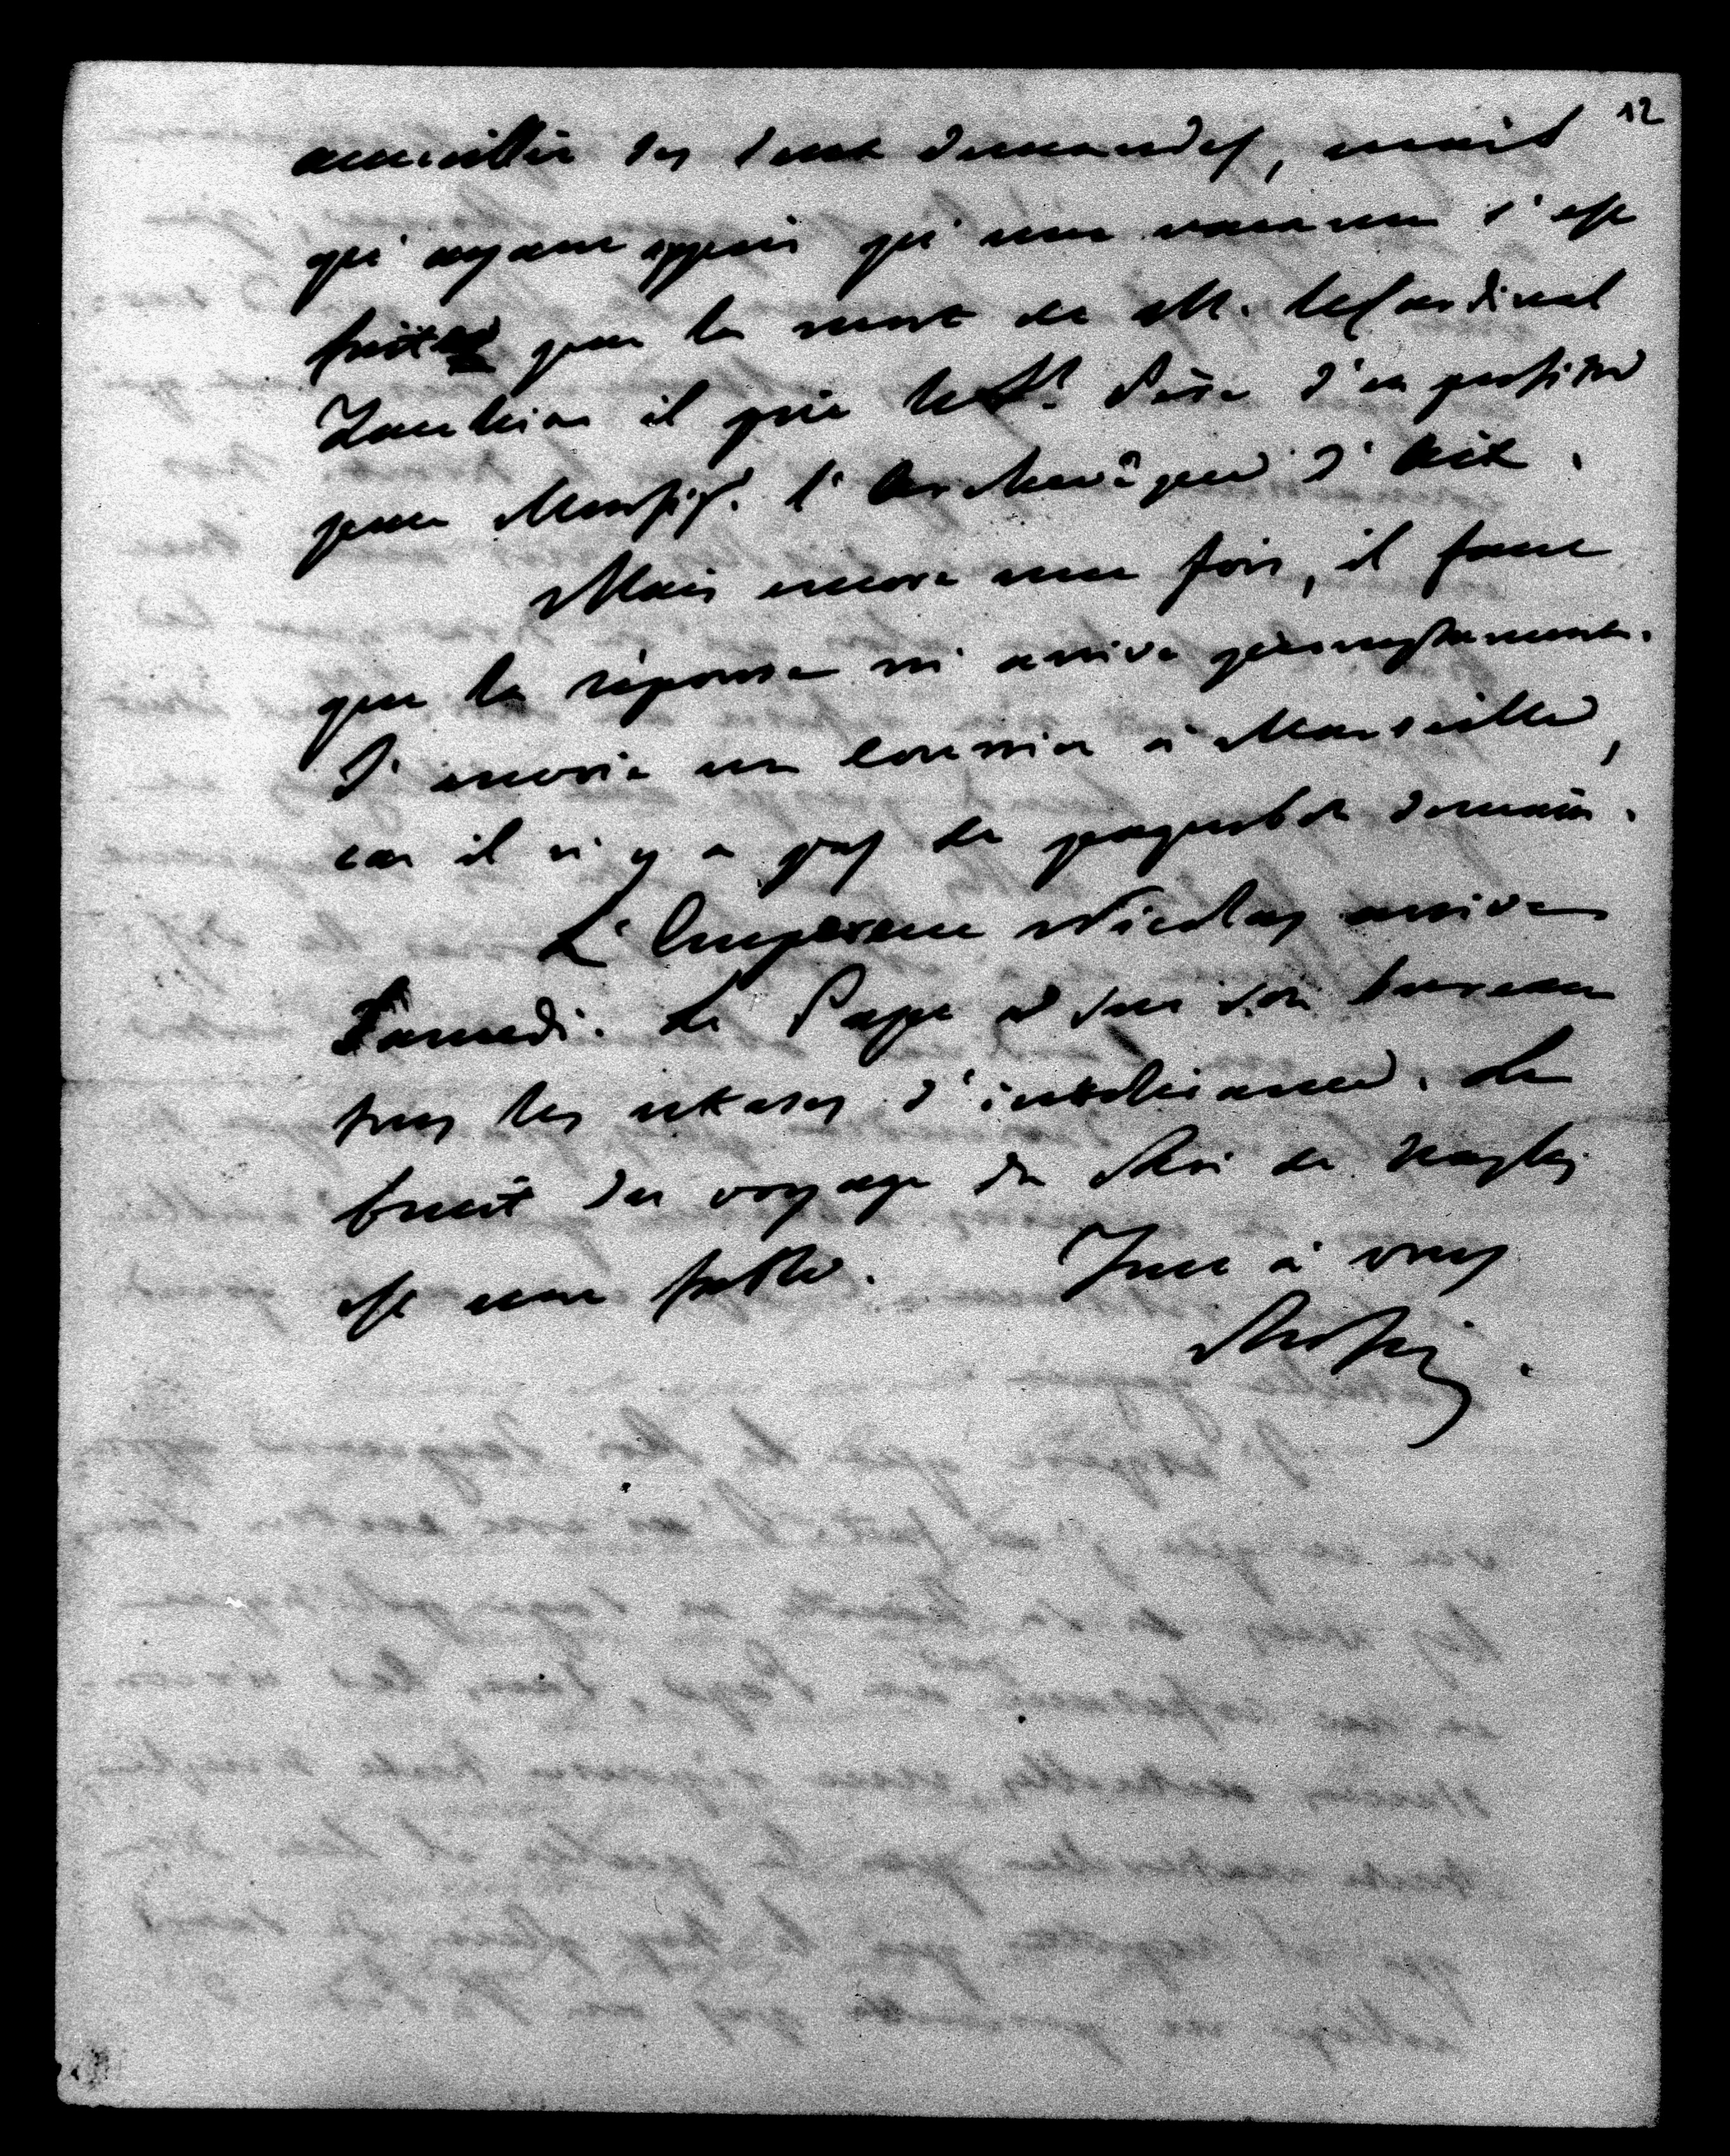 12
accueillir ses deux demandes, mais
qu'ayant appris qu'une vacance s'est
faite par la mort de M. le Cardinal
il prie le St. Père d'en profiter
pour Monsigr. l'Archevêque d'Aix.
Mais encore une fois, il faut
que la réponse m'arrive promptement.
J'envoie un Courrier à Marseille,
car il n'y a pas de paquebot demain.
L'Empereur Nicolas arrive
Samedi. Le Pape a sur son bureau
tous les ukases d'intolérance. Le
bruit du voyage du Roi de Naples
est une fable. Tout à vous
Rossi.